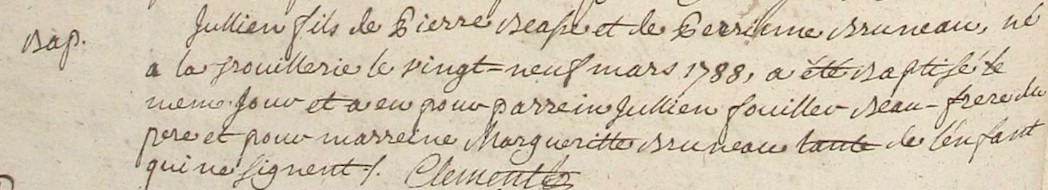 Bap. Jullien fils de Pierre Beasse et de Perrinne Bruneau, né
a la frouillerie le vingt-neuf mars 1788, a été Baptisé le
meme jour et a eu pour parrein Jullien fouiller Beau-frere du
pere et pour marreine Margueritte Bruneau tante de l'enfant
qui ne signent /. Clement